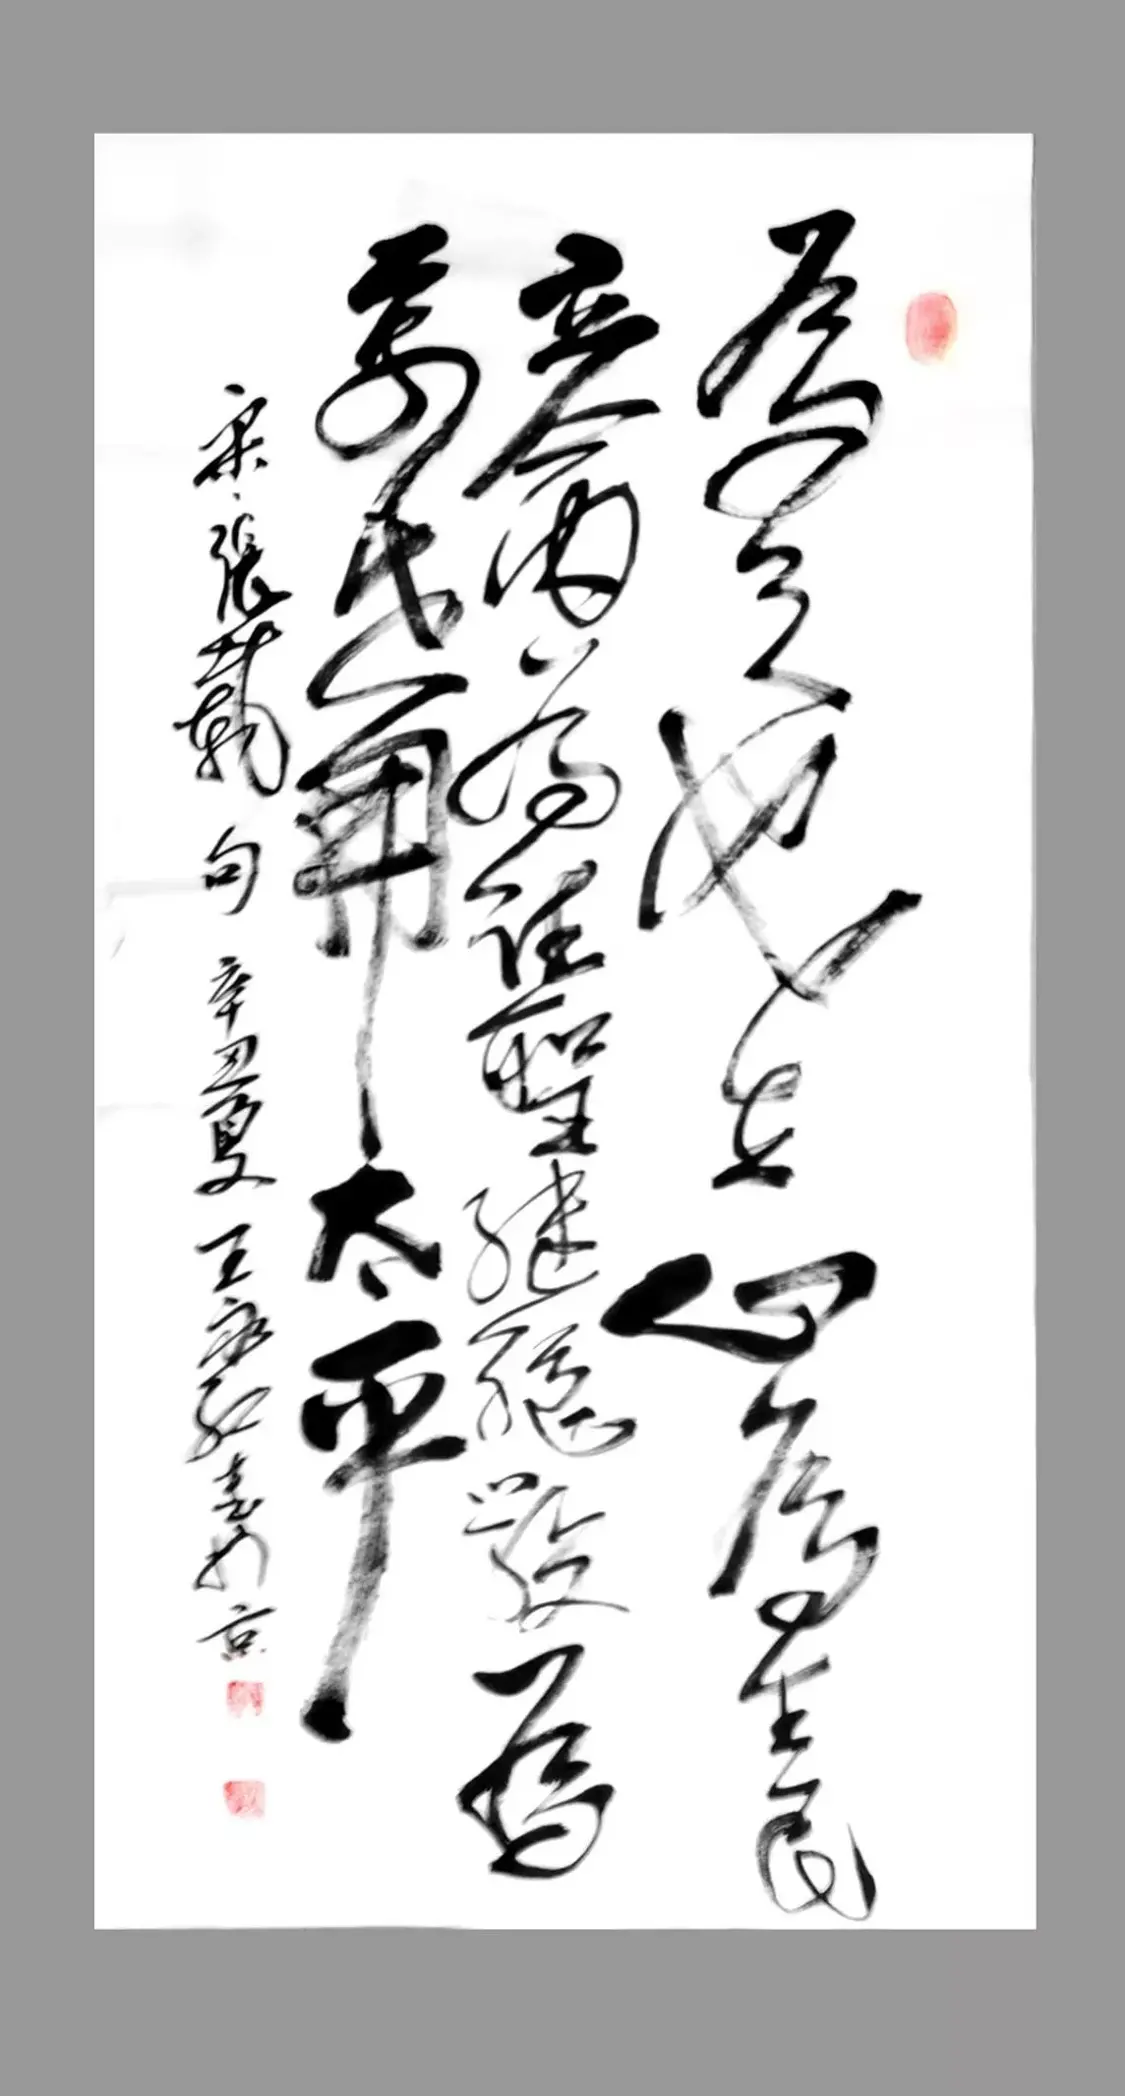 為天地立心為生民
立命為往聖繼絶學為
萬世開太平
宋張載句辛丑夏王永紅書於京